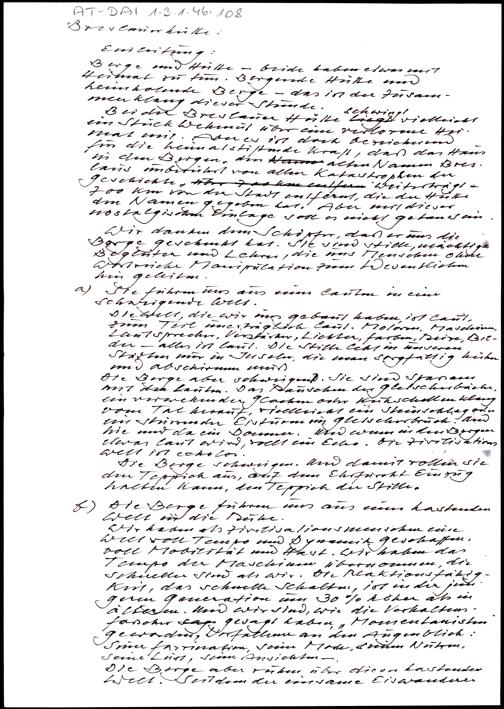 AT-DAI 1.3.1.46.108
Breslauerhütte:
Einleitung:
Berge und Hütte – beide haben etwas mit
Heimat zu tun. Bergende Hütte und
heimholende Berge – das ist der Zusam-
menklang dieser Stunde.
Bei der Breslauer Hütte schwingt vielleicht
ein Stück Wehmut über eine verlorene Hei-
mat mit. Aber es ist doch bezeichnend
für die heimatstiftende Kraft, daß das Haus
in den Bergen, den alten Namen Bres-
laus unberührt von allen Katastrophen der
Geschichte weiterträgt –
700 km von der Stadt entfernt, die der Hütte
den Namen gegeben hat. Aber mit dieser
nostalgischen Einlage soll es nicht getan sein.
Wir danken dem Schöpfer, daß er uns die
Berge geschenkt hat. Sie sind stille, mächtige
Begleiter und Lehrer, die uns Menschen ohne
wortreiche Manipulation zum Wesentlichen
hin geleiten.
a) Sie führen uns aus einer lauten in eine
schweigende Welt.
Die Welt, die wir uns gebaut haben, ist laut,
zum Teil unerträglich laut. Motoren, Maschinen,
Lautsprecher, Verstärker, Lichter, Farben, Reize, Bil-
der – alles ist laut. Die Stille lebt in unseren
Städten nur in Inseln, die man sorgfältig hüten
und abschirmen muß.
Die Berge aber schweigen. Sie sind sparsam
mit den Lauten. Das Rauschen der Gletscherbäche,
ein verwehender Glocken oder Kuhschellenklang
vom Tal herauf, vielleicht ein Steinschlag oder
ein stürzender Eisturm im Gletscherbruch. Und
hie und da ein Donner. Und wenn in den Bergen
etwas laut wird rollt ein Echo. Die Zivilisations
welt ist echolos.
Die Berge schweigen. Und damit rollen sie
den Teppich aus, auf dem Ehrfurcht Einzug
halten kann, den Teppich der Stille.
b) Die Berge führen uns aus einer hastenden
Welt in die Ruhe.
Wir haben als Zivilisationsmenschen eine
Welt voll Tempo und Dynamik geschaffen,
voll Mobilität und Hast. Wir haben das
Tempo der Maschinen übernommen, die
schneller sind als wir. Die Reaktionsfähig-
keit, das schnelle Schalten, ist in der jün-
geren Generation um 30% höher als in
älteren. Und wir sind, wie die Verhaltens-
forscher gesagt haben, "Momentanisten"
geworden, Verfallene an den Augenblick:
Seine Faszination, seine Mode, seinen Nutzen,
seine Lust, seine Ansichten –
Die Berge aber ruhen über dieser hastenden
Welt. Seitdem der einsame Eiswanderer